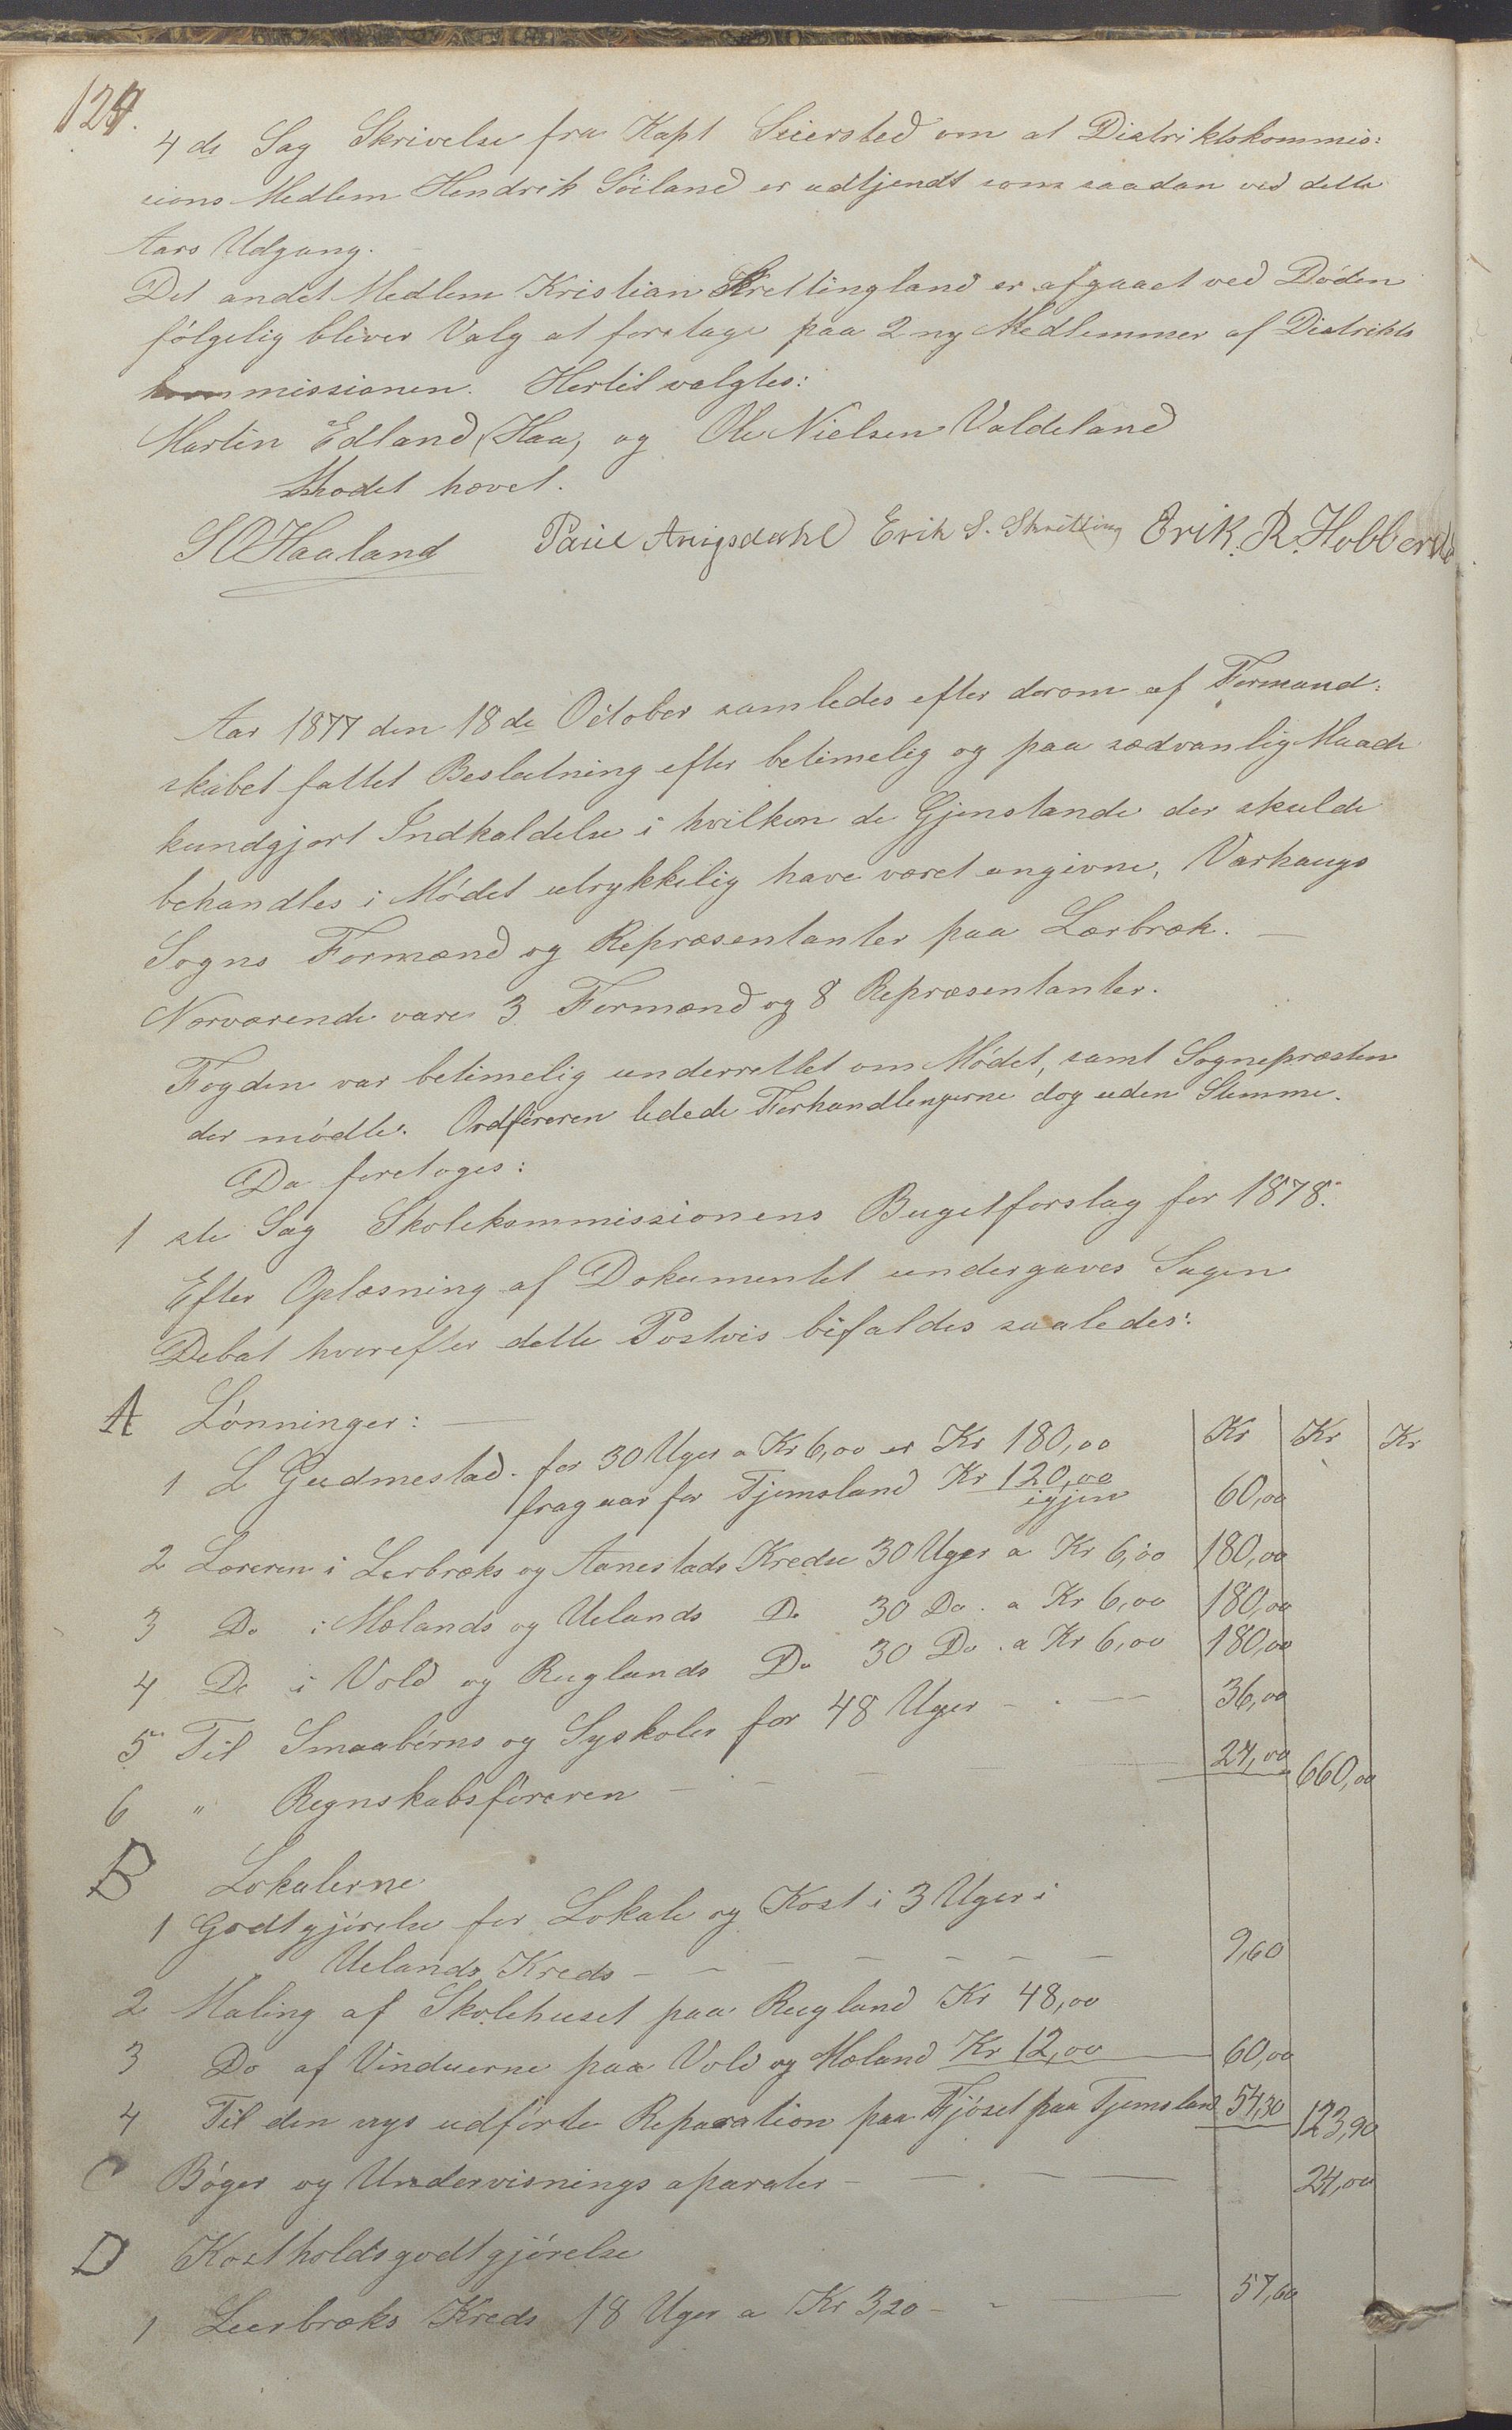 4de Sag Skrivelse fra Kapt Seiersted om at Distriktskommis:
sions Medlem Hendrik Söiland er udtjendt som saadan ved dette
Aars Udgang.
Det andet Medlem Kristian Skretlingland er afgaaet ved Döden
fölgelig bliver Valg at foretage paa 2 ny Medlemmer af Distrikts
kommissionen. Hertil valgtes:
Martin Edland (Haa) og Ole Nielsen Valdeland
Modet hævet.
S O Haaland Paul Anigsdahl Erik S. Skretting Erik. R. Hobberstd
Aar 1877 den 18de October samledes efter derom af Formand:
skabet fattet Beslutning efter betimelig og paa sædvanlig Maade
kundgjort Indkaldelse i hvilken de Gjenstande der skulde
behandles i Mödet utrykkelig have været angivne, Varhaugs
Sogns Formænd og Repræsentanter paa Lærbræk. —
Nærværende vare 3 Formænd og 8 Repræsentanter.
Fogden var betimelig underrettet om Mödet, samt Sognepræsten
der mödte. Ordföreren ledede Forhandlingerne dog uden Stemme.
Da foretoges:
1 ste Sag Skolekommissionens Bugetforslag for 1878.
Efter Oplæsning af Dokumentet undergaves Sagen
Debat hvorefter dette Postvis bifaldes saaledes:
A Lönninger: — Kr Kr Kr
1 L Gudmestad. for 30 Uger a Kr 6,00 er Kr 180,00
fragaar for Tjemsland Kr 120,00
igjen 60,00
2 Læreren i Lerbræks og Aanestads Kredse 30 Uger a Kr 6,00 180,00
3 Do i Mælands og Uelands Do 30 Do. a Kr 6,00 180,00
4 Do i Vold og Ruglands Do 30 Do. a Kr 6,00 180,00
5 Til Smaabörns og Syskoler for 48 Uger — 36,00
6 " Regnskabsföreren — 24,00 660,00
B Lokalerne
1 Godtgjörelse for Lokale og Kost i 3 Uger i
Uelands Kreds — 9,60
2 Maling af Skolehuset paa Rugland Kr 48,00
3 Do af Vinduerne paa Vold og Mæland Kr 12,00 — 60,00
4 Til den nys udförte Reparation paa Fjöset paa Tjemsland 54,30 123,90
C Böger og Undervisnings aparater — 24,00
D Kostholdsgodtgjörelse
1 Leerbræks Kreds 18 Uger a Kr 3,20 — 57,60